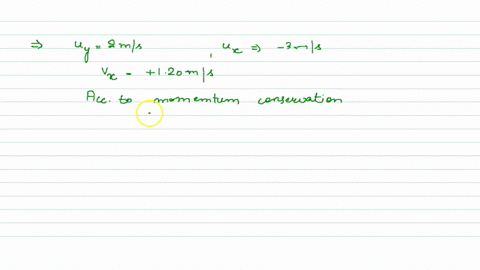 ⇒ u_y = 2 m/s , u_x ⇒ -3 m/s
V_x = +1.20 m/s
Acc. to momentum conservation